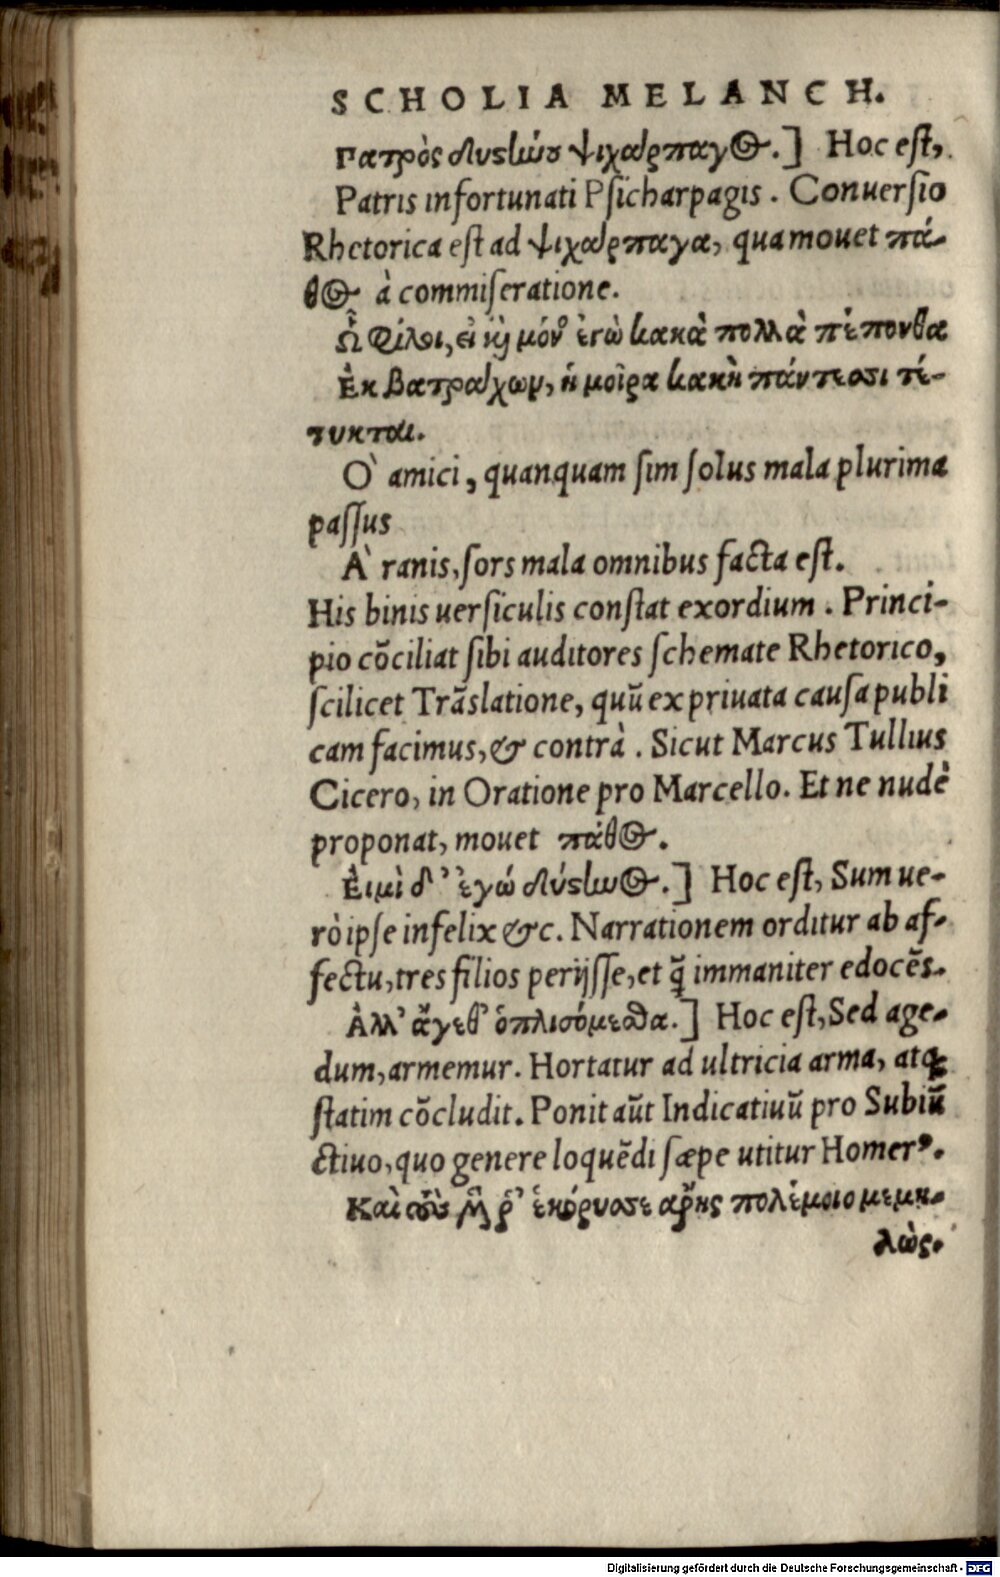 SCHOLIA MELANCH.
Πατρὸς δυστήνου ψιχάρπαγος.] Hoc est,
Patris infortunati Psicharpagis. Conuersio
Rhetorica est ad ψιχάρπαγα, qua mouet πά-
θος à commiseratione.
Ὦ φίλοι, εἰ καὶ μόνος ἐγὼ κακὰ πολλὰ πέπονθα
Ἐκ βατράχων, ἡ μοῖρα κακὴ πάντεσσι τέ-
τυκται.
O` amici, quanquam sim solus mala plurima
passus
A` ranis, sors mala omnibus facta est.
His binis uersiculis constat exordium. Princi-
pio cõciliat sibi auditores schemate Rhetorico,
scilicet Trãslatione, quũ ex priuata causa publi
cam facimus, & contrà. Sicut Marcus Tullius
Cicero, in Oratione pro Marcello. Et ne nudè
proponat, mouet πάθος.
Εἰμὶ δ' ἐγώ δύστηνος.] Hoc est, Sum ue-
rò ipse infelix &c. Narrationem orditur ab af-
fectu, tres filios perijsse, et q̃ immaniter edocẽs.
Ἀλλ' ἄγεθ' ὁπλισόμεσθα.] Hoc est, Sed age-
dum, armemur. Hortatur ad ultricia arma, atq;
statim cõcludit. Ponit aũt Indicatiuũ pro Subiũ
ctiuo, quo genere loquẽdi sæpe utitur Homerꝰ.
Καὶ τοὺς μέν ῥ' ἐκόρυσσε ἄρης πολέμοιο μεμη-
λὼς.
Digitalisierung gefördert durch die Deutsche Forschungsgemeinschaft - DFG